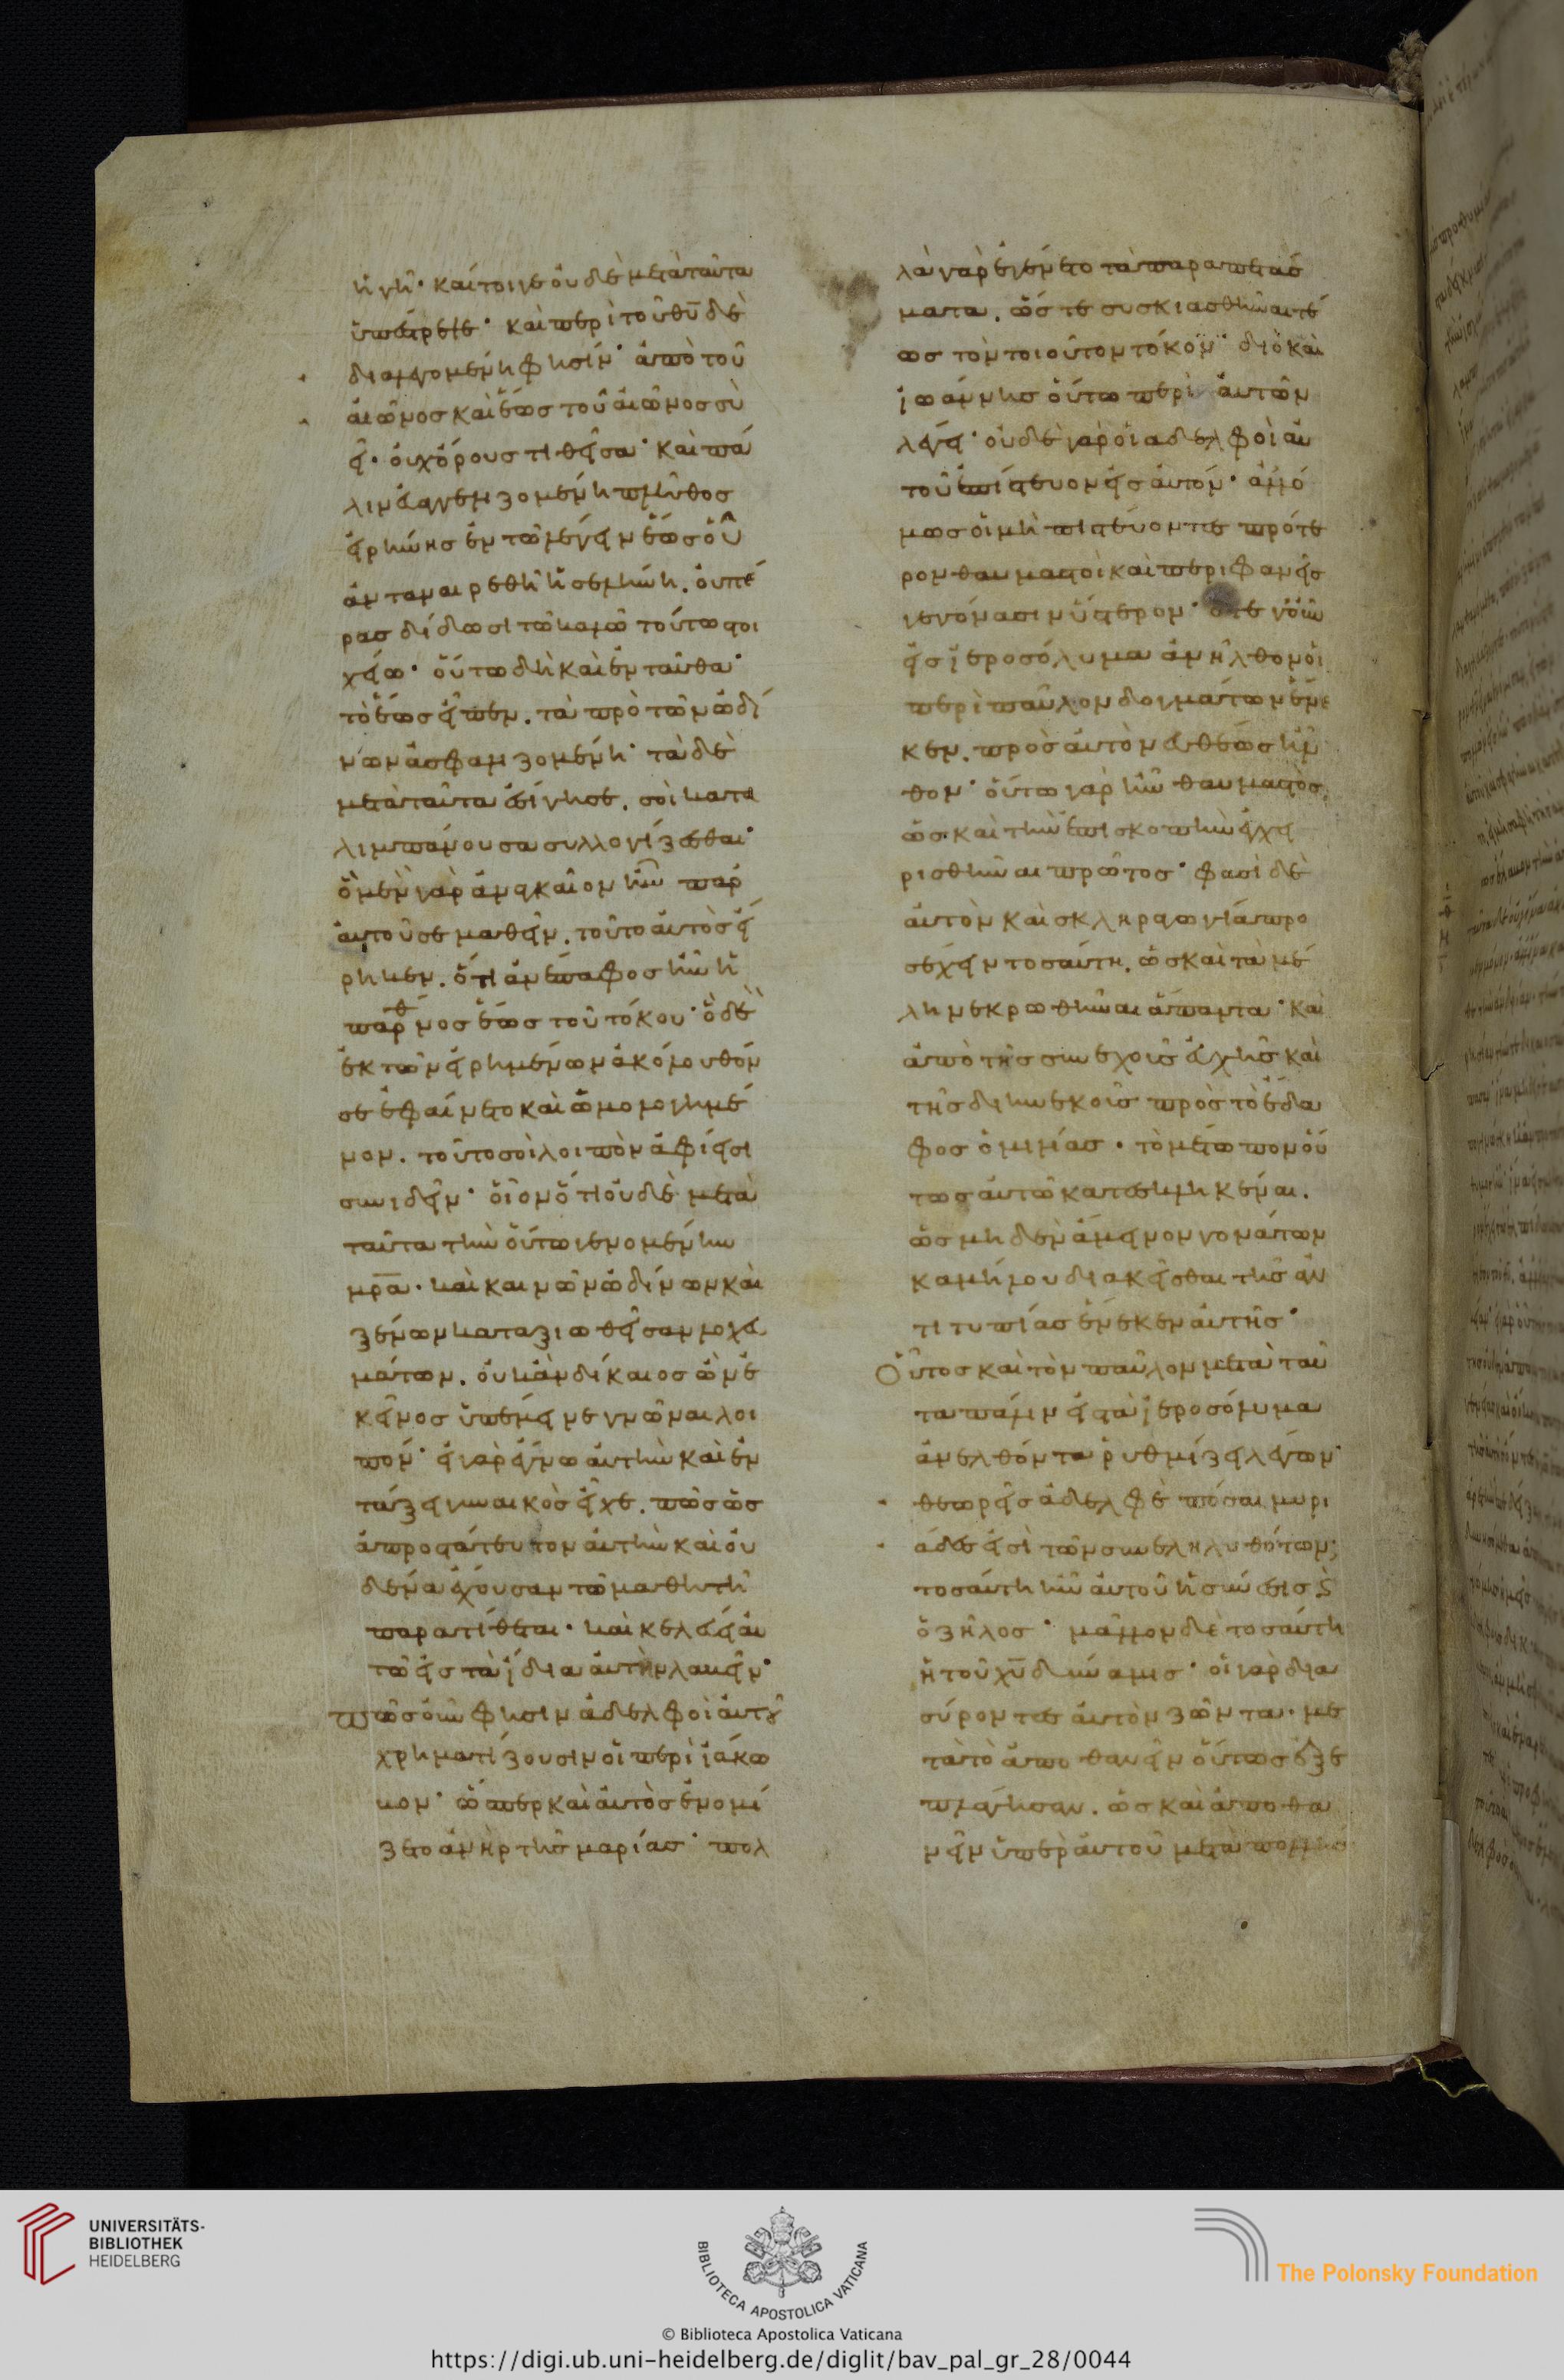 ἡ γῆ· καίτοιγε οὐδὲ μετὰ ταῦτα
ὑπέστρεψε· καὶ περὶ τοῦ θῦ δὲ
διαλεγομένη φησὶν· ἀπὸ τοῦ
αἰῶνος καὶ ἕως τοῦ αἰῶνος σὺ
εἶ· οὐχ ὅρους τιθεῖσα· καὶ πά
λιν εὐαγγελιζομένη πλῆθος
εἰρήνης ἐν τῶ λέγειν ἕως οὗ
ἀνταναιρεθῆ ἡ σελήνη. οὐ πέ
ρας δίδωσι τῶ καλῶ τούτω στοι
χείω· οὕτω δὴ καὶ ἐνταῦθα·
τὸ ἕως εἶπεν. τὰ πρὸ τῶν ὠδί
νων ἀσφαλιζομένη· τὰ δὲ
μετὰ ταῦτα ἐσίγησε. σοὶ κατα
λιμπάνουσα συλλογίζεσθαι·
ὃ μὲν γὰρ ἀναγκαῖον ἦν παρ
αὐτοῦ σε μαθεῖν. τοῦτο αὐτὸς εἴ
ρηκεν. ὅτι ἀνέπαφος ἦν ἡ
παρθένος ἕως τοῦ τόκου· ὃ δὲ
ἐκ τῶν εἰρημένων ἀκόλουθόν
σε ἐφαίνετο καὶ ὡμολογημέ
νον. τοῦτο σοὶ λοιπὸν ἀφίησι
συνιδεῖν· οἷον ὅτι οὐδὲ μετὰ
ταῦτα τὴν οὕτω γενομένην
μρα· καὶ καινῶν ὠδίνων καὶ
ξένων καταξιωθεῖσαν λοχευ
μάτων. οὐκ ἂν δίκαιος ὢν ἐ
κεῖνος ὑπέμεινε γνῶναι λοι
πόν· εἰ γὰρ ἔγνω αὐτὴν καὶ ἐν
τάξει γυναικὸς εἶχε. πῶς ὡς
ἀπροστάτευτον αὐτὴν καὶ οὐ
δένα ἔχουσαν τῶ μαθητῆ
παρατίθεται· καὶ κελεύει αὐ
τῶ εἰς τὰ ἴδια αὐτὴν λαβεῖν·
πῶς οὖν φησὶν ἀδελφοὶ αὐτοῦ
χρηματίζουσιν οἱ περὶ ἰάκω
βον· ὥσπερ καὶ αὐτὸς ἐνομί
ζετο ἀνὴρ τῆς μαρίας· πολ
λὰ γὰρ ἐγένετο τὰ παραπετάσ
ματα. ὥστε συσκιασθῆναι τέ
ως τὸν τοιοῦτον τόκον· διὸ καὶ
ἰωάννης οὕτω περὶ αὐτῶν
λέγει· οὐδὲ γὰρ οἱ ἀδελφοὶ αὐ
τοῦ ἐπίστευον εἰς αὐτόν· ἀλλό
μως οἱ μὴ πιστεύοντες πρότε
ρον θαυμαστοὶ καὶ περιφανεῖς
γεγόνασιν ὕστερον· ὅτε γοῦν
εἰς ἱεροσόλυμα ἀνῆλθον οἱ
περὶ παῦλον δογμάτων ἕνε
κεν. πρὸς αὐτὸν εὐθέως ἦλ
θον· οὕτω γὰρ ἦν θαυμαστὸς.
ὡς καὶ τὴν ἐπισκοπὴν ἐγχει
ρισθῆναι πρῶτος· φασὶ δὲ
αὐτὸν καὶ σκληραγωγία προ
σέχειν τοσαύτη. ὡς καὶ τὰ μέ
λη νεκρωθῆναι ἅπαντα· καὶ
ἀπὸ τῆς συνεχοῦς εὐχῆς καὶ
τῆς διηνεκοῦς πρὸς τὸ ἔδα
φος ὁμιλίας· τὸ μέτωπον οὕ
τως αὐτῶ κατεσκληκέναι.
ὡς μηδὲν ἄμεινον γονάτων
καμήλου διακεῖσθαι τῆς ἀν
τιτυπίας ἕνεκεν αὐτῆς·
Οὗτος καὶ τὸν παῦλον μετὰ ταῦ
τα πάλιν εἰς τὰ ἱεροσόλυμα
ἀνελθόντα ῥυθμίζει λέγων·
θεωρεῖς ἀδελφὲ πόσαι μυρι
άδες εἰσὶ τῶν συνεληλυθότων;
τοσαύτη ἦν αὐτοῦ ἡ σύνεσις καὶ
ὁ ζῆλος· μᾶλλον δὲ τοσαύτη
ἡ τοῦ χῦ δύναμις· οἱ γὰρ δια
σύροντες αὐτὸν ζῶντα. με
τὰ τὸ ἀποθανεῖν οὕτως ἐξε
πλάγησαν. ὡς καὶ ἀποθα
νεῖν ὑπὲρ αὐτοῦ μετὰ πολλῆς
UNIVERSITÄTS-
BIBLIOTHEK
HEIDELBERG
BIBLIOTECA APOSTOLICA VATICANA
© Biblioteca Apostolica Vaticana
The Polonsky Foundation
https://digi.ub.uni-heidelberg.de/diglit/bav_pal_gr_28/0044